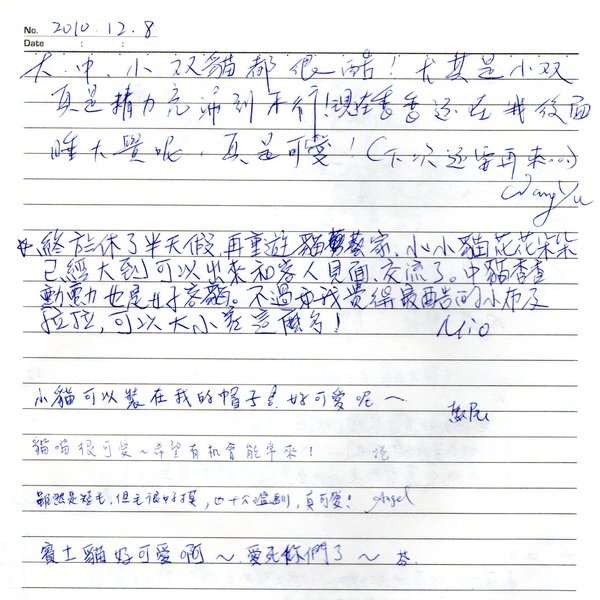 No. 2010.12.8
Date : :
大、中、小双貓都很酷！尤其是小双
真是精力充沛到不行!現在香香還在我後面
睡大覺呢，真是可愛！(下次還要再來...)
Wang Yu
終於休了半天假，再重遊貓藝家，小小貓花花朵朵
已經大到可以出來和客人見面、交流了。中貓香香
動動也是好客貓。不過我覺得最酷的小布及
拉拉，可以大小差這麼多！ Mio
小貓可以裝在我的帽子! 好可愛呢～
貓喵很可愛～希望有机會能再來！
雖然是短毛，但毛很好摸，也十分溫馴，真可愛! Angel
賓士貓好可愛啊～愛死你們了～ 芬